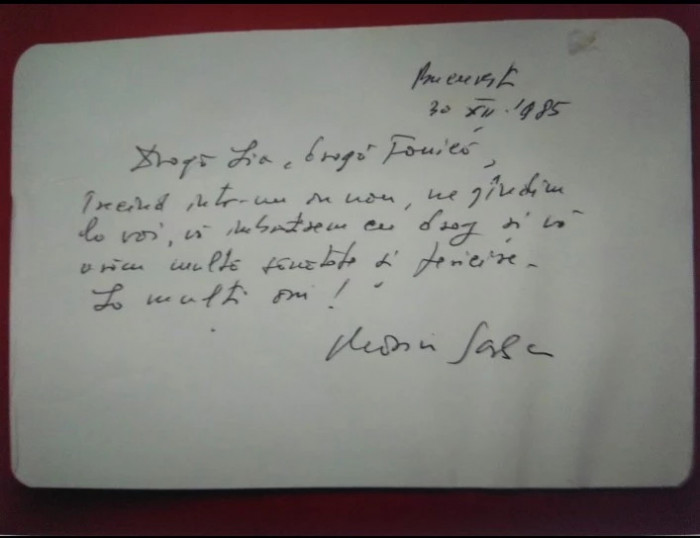 București
30 XII 1985
Dragă Lia, dragă Fănică,
Trecînd intr-un an nou, ne gîndim
la voi, vă imbrățișem cu drag si vă
urăm multă sănătate si fericire.
La multi ani!